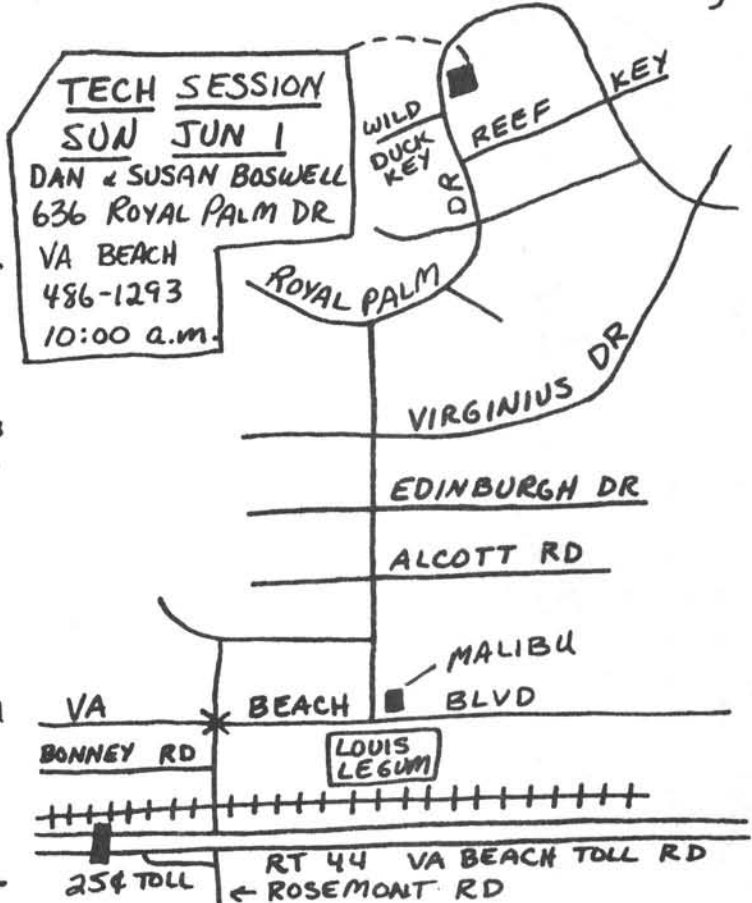 TECH SESSION
SUN JUN 1
DAN & SUSAN BOSWELL
636 ROYAL PALM DR
VA BEACH
486-1293
10:00 a.m.
WILD
DUCK
KEY
REEF KEY
ROYAL PALM DR
VIRGINIUS DR
EDINBURGH DR
ALCOTT RD
MALIBU
VA BEACH BLVD
BONNEY RD
LOUIS
LEGUM
25¢ TOLL
RT 44 VA BEACH TOLL RD
← ROSEMONT RD